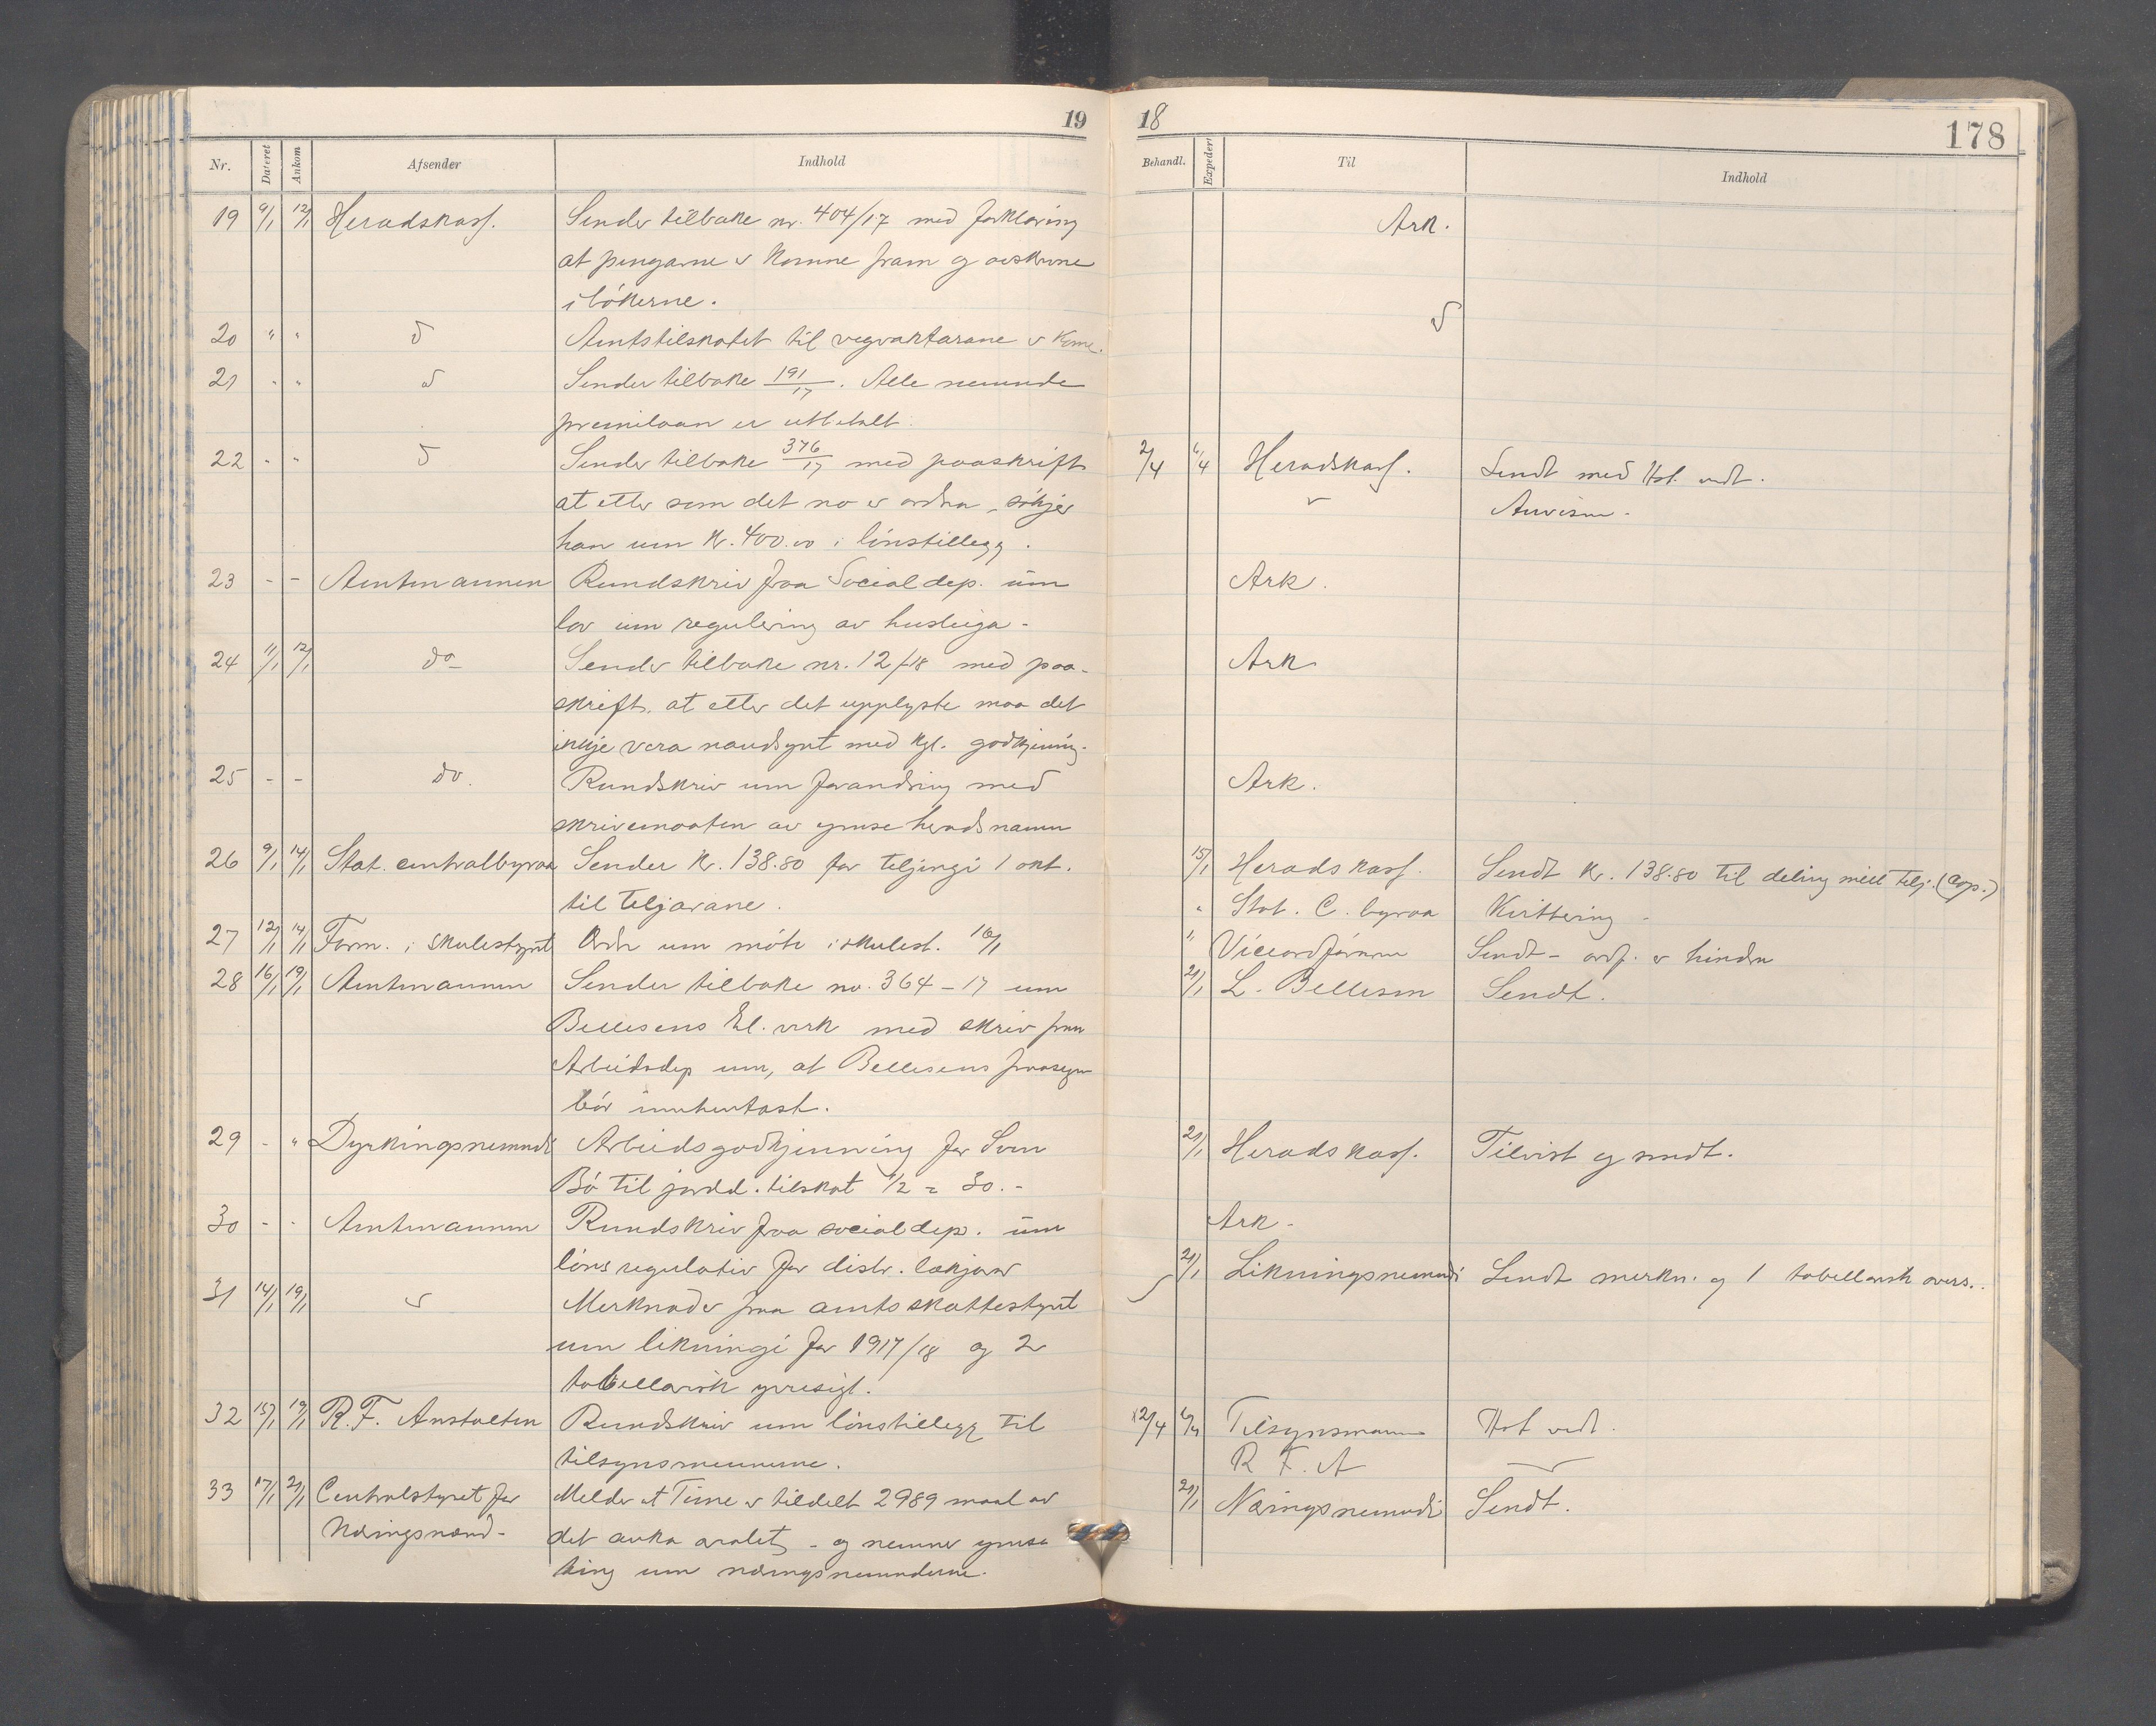 19
Nr. Dateret Ankom Afsender Indhold
19 9/1 12/1 Heradskass. Sender tilbake nr. 404/17 med forklaring
at pengarne er komne fram og avskrivne
i bókerne.
20 " " d Amtstilskotet til vegvaktarane er kome.
21 " " d Sender tilbake 191/17. Alle nemnde
premilaan er utbetalt.
22 - " d Sender tilbake 376/17 med paaskrift
at etter som det no er ordna, sökjer
han um kr. 400.00 i lönstillegg.
23 - - Amtmannen Rundskriv fraa Social dep. um
lov um regulering av husleiga -
24 11/1 12/1 do Sender tilbake nr. 12/18 med paa-
skrift. at etter det upplyste maa det
inkje vera naudsynt med kgl. godkjening.
25 - - do. Rundskriv um forandring med
skrivemaaten av ymse heradsnamn
26 9/1 14/1 Stat. centralbyraa Sender kr. 138.80 for teljingi 1 okt.
til teljarane.
27 12/1 14/1 Form. i skulestyret Ordr um móte i skulest. 16/1
28 16/1 19/1 Amtmannen Sender tilbake nr. 364-17 um
Bellesens El. verk med skriv fraa
Arbeidsdep um, at Bellesens fraasegn
bór innhentast.
29 - " Dyrkingsnemndi Arbeidsgodkjenning for Sven
Bó til jordd. tilskot 1/2 = 30.-
30 - - Amtmannen Rundskriv fraa socialdep. um
lónsregulativ for distr. lækjarar
31 14/1 19/1 d Merknader fraa amtsskattestyret
um likningi for 1917/18 og 2
tabellarisk yversigt.
32 15/1 19/1 R.F. Anstalten Rundskriv um lónstillegg til
tilsynsmennerne.
33 17/1 21/1 Centralstyret for Melder at Time er tildelt 2989 maal av
Næringsnemd- det auka arealet, - og nemner ymse
ting um næringsnemnderne.
18 178
Behandl. Expedert Til Indhold
Ark.
d
2/4 6/4 Heradskass. Sendt med Hst. vedt.
Anvisn.
Ark.
Ark
Ark.
15/1 Heradskass. Sendt kr. 138.80 til deling mill telj. (Cop.)
" Stat. C. byraa Kvittering -
" Viceordförarn Sendt - ordf. er hindra
21/1 L. Bellesen Sendt.
21/1 Heradskass. Tilvist og sendt.
Ark -
21/1 Likningsnemndi Sendt merkn. og 1 tabellarisk overs..
2/4 6/4 Tilsynsmann Hst vedt.
R F. A
21/1 Næringsnemndi Sendt.